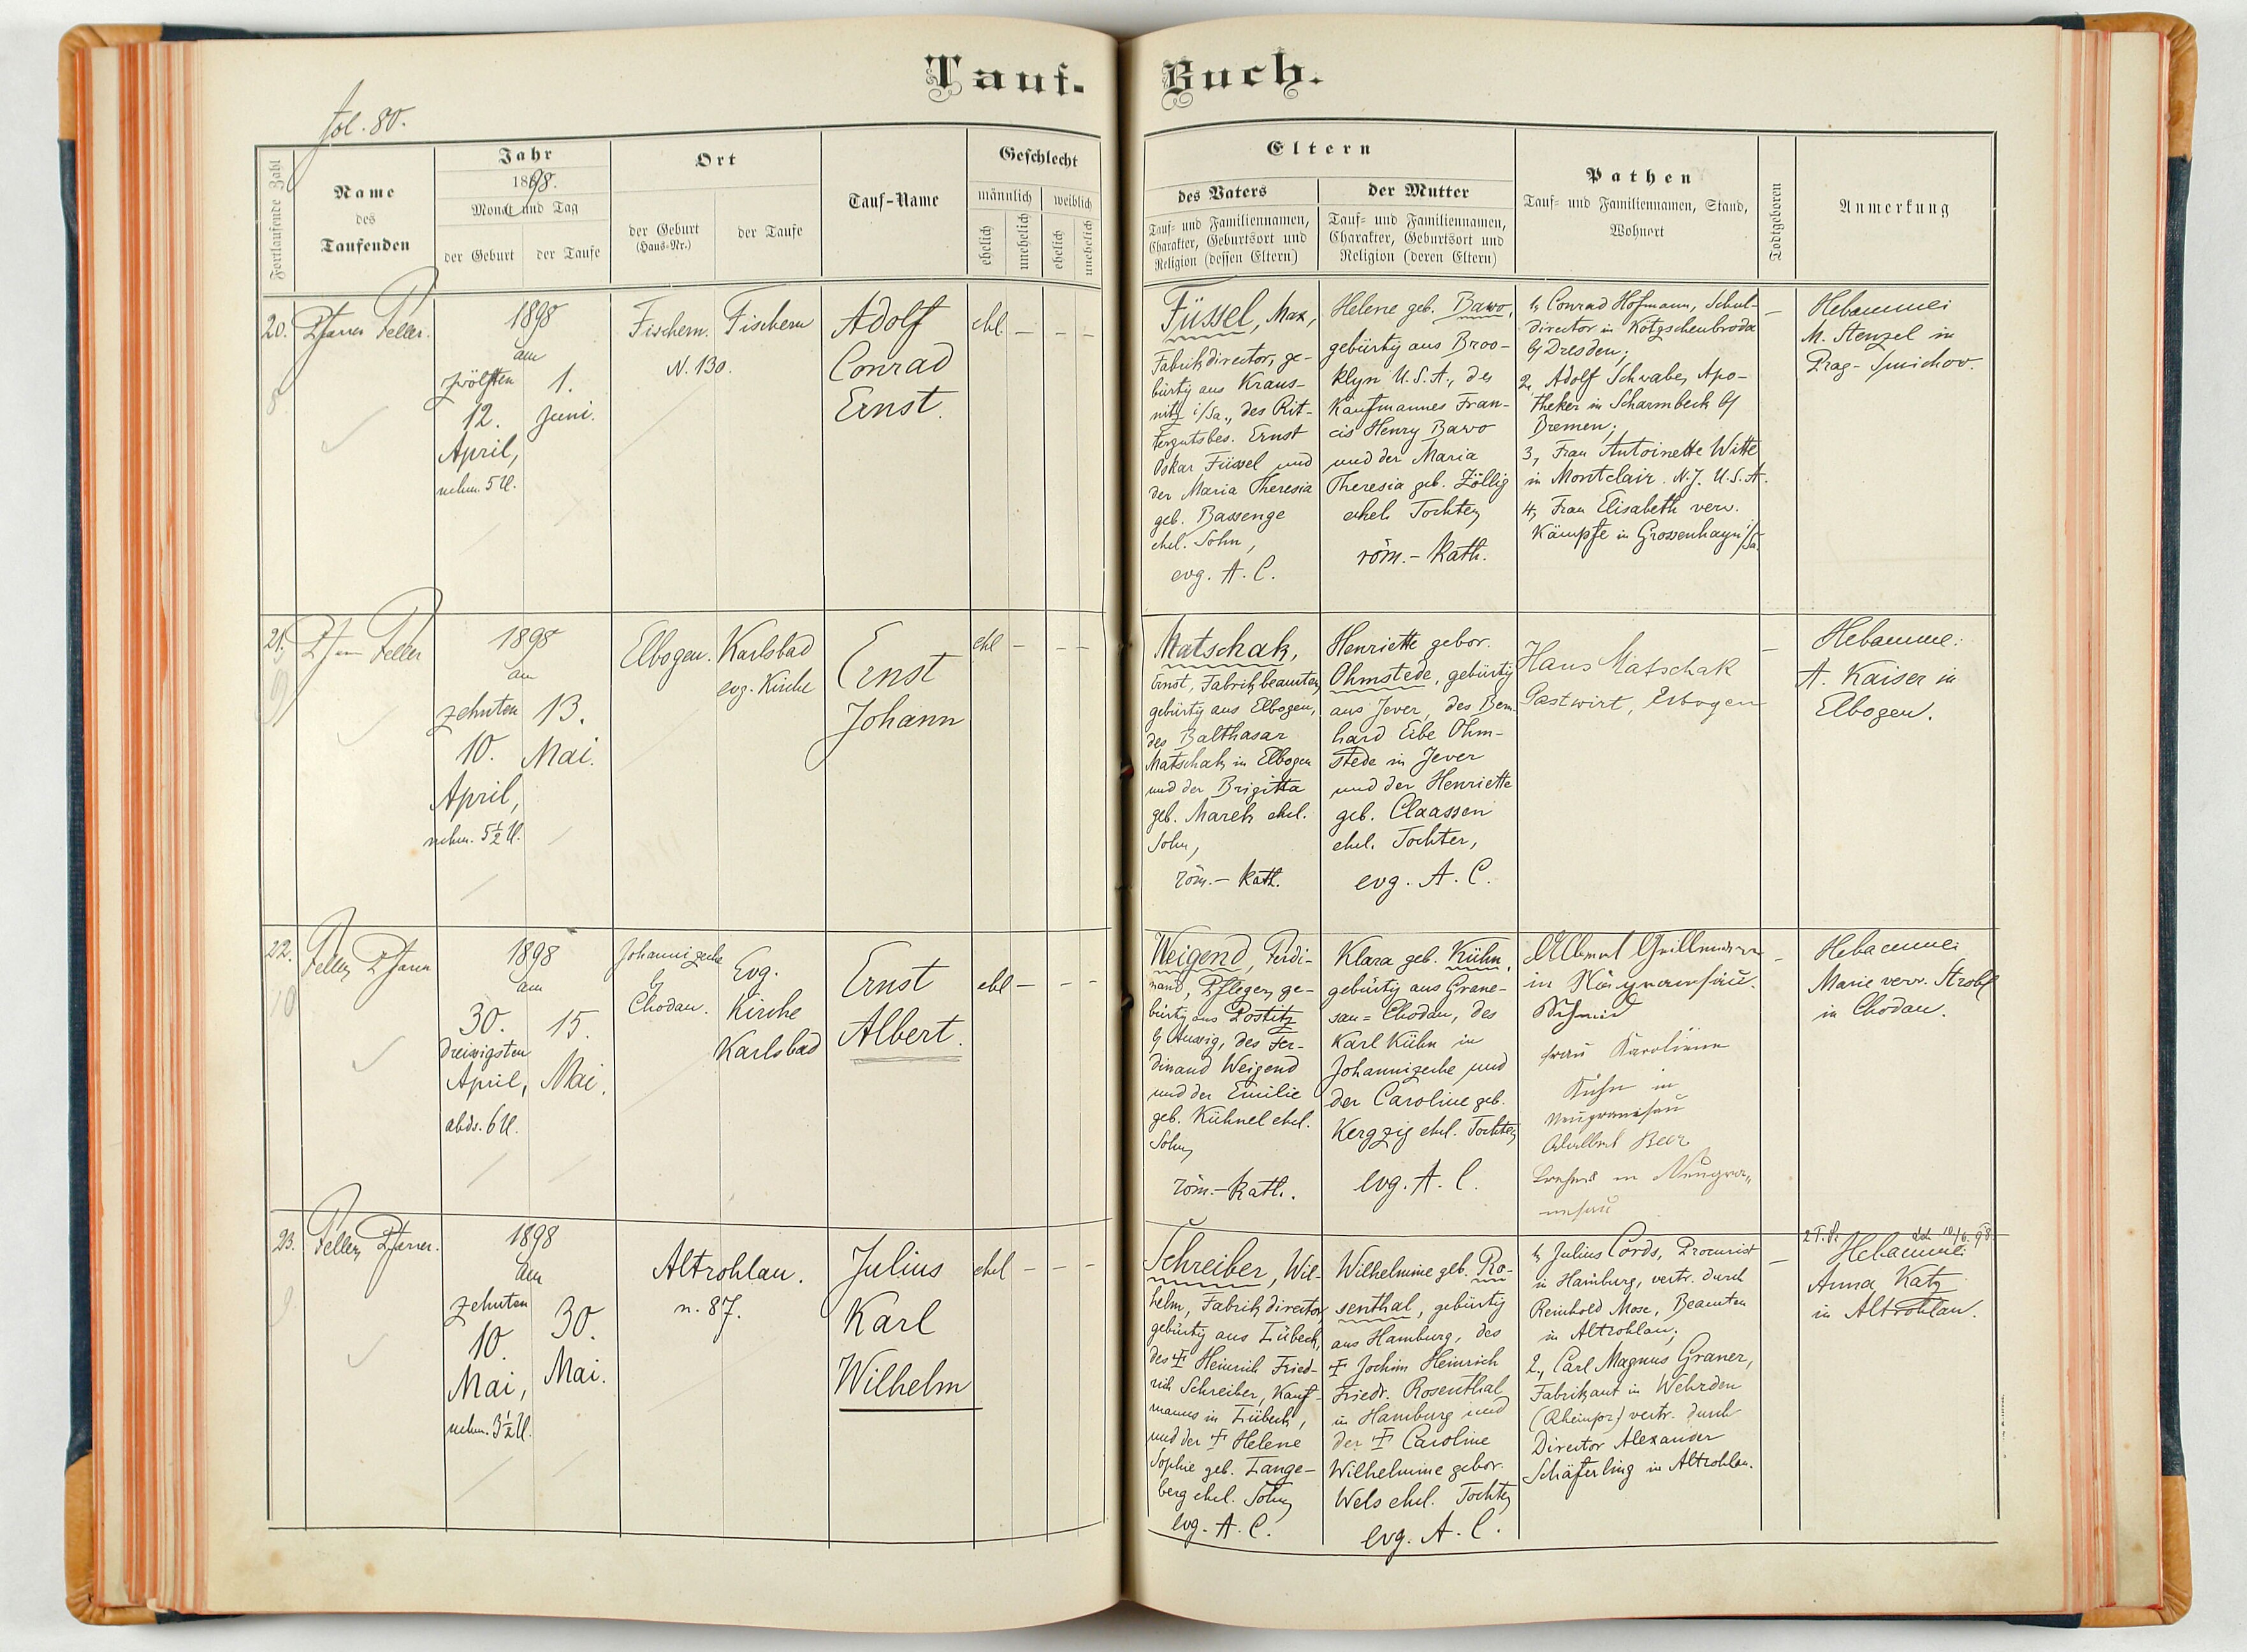 Tauf-
Buch.
fol. 80.
Fortlaufende Zahl
Name
des
Taufenden
Jahr
1898.
Monat und Tag
der Geburt
der Taufe
Ort
der Geburt
(Haus-Nr.)
der Taufe
Tauf-Name
Geschlecht
männlich
weiblich
ehelich
unehelich
ehelich
unehelich
Eltern
des Vaters
Tauf- und Familiennamen,
Charakter, Geburtsort und
Religion (dessen Eltern)
der Mutter
Tauf- und Familiennamen,
Charakter, Geburtsort und
Religion (deren Eltern)
Pathen
Tauf- und Familiennamen, Stand,
Wohnort
Todtgeboren
Anmerkung
20.
8
Pfarrer Feller.
1898
am
zwölften
12.
April,
nchm. 5 U.
1.
Juni.
Fischern.
N. 130.
Fischern
Adolf
Conrad
Ernst.
ehl. – – –
Füssel, Max,
Fabrikdirector, ge-
bürtig aus Kraus-
nitz i/Sa., des Rit-
tergutsbes. Ernst
Oskar Füssel und
der Maria Theresia
geb. Bassenge
ehel. Sohn,
evg. A. C.
Helene geb. Bawo,
gebürtig aus Broo-
klyn U.S.A., des
Kaufmannes Fran-
cis Henry Bawo
und der Maria
Theresia geb. Zöllig
ehel. Tochter,
röm.-kath.
1, Conrad Hofmann, Schul-
director in Kötzschenbroda
b/ Dresden;
2, Adolf Schwabe, Apo-
theker in Scharmbeck b/
Bremen;
3, Frau Antoinette Witte
in Montclair. N.J. U.S.A.
4, Frau Elisabeth verw.
Kämpfe in Grossenhayn i/Sa.
–
Hebamme:
M. Stenzel in
Prag-Smichov.
21.
9
Pfarrer Feller
1898
am
zehnten
10.
April,
nchm. 5½ U.
13.
Mai.
Elbogen.
Karlsbad
evg. Kirche
Ernst
Johann
ehl – – –
Matschak,
Ernst, Fabrikbeamter,
gebürtig aus Elbogen,
des Balthasar
Matschak in Elbogen
und der Brigitta
geb. Marek ehel.
Sohn,
röm.-kath.
Henriette gebor.
Ohmstede, gebürtig
aus Jever, des Bern-
hard Eibe Ohm-
stede in Jever
und der Henriette
geb. Claassen
ehel. Tochter,
evg. A. C.
Hans Matschak
Gastwirt, Elbogen
–
Hebamme:
A. Kaiser in
Elbogen.
22.
10
Feller, Pfarrer
1898
am
30.
dreissigsten
April,
abds. 6 U.
15.
Mai.
Johannizeche
b/
Chodau.
Evg.
Kirche
Karlsbad
Ernst
Albert.
ehl – – –
Weigend, Ferdi-
nand, Pfleger, ge-
bürtig aus Postitz
b/ Aussig, des Fer-
dinand Weigend
und der Emilie
geb. Kühnel ehel.
Sohn,
röm.-kath.
Klara geb. Kühn,
gebürtig aus Grane-
sau-Chodau, des
Karl Kühn in
Johannizeche und
der Caroline geb.
Kergzig ehel. Tochter,
evg. A. C.
Albert
in
Schmied
frau Karoline
Kühn in
Neugranesau
Beer
in Neugra-
nesau
–
Hebamme:
Marie verw. Strobl
in Chodau.
23.
9
Feller, Pfarrer.
1898
am
zehnten
10.
Mai,
nchm. 3½ U.
30.
Mai.
Altrohlau.
n. 87.
Julius
Karl
Wilhelm
ehel – – –
Schreiber, Wil-
helm, Fabrikdirector,
gebürtig aus Lübeck,
des † Heinrich Fried-
rich Schreiber, Kauf-
mannes in Lübeck,
und der † Helene
Sophie geb. Lange-
berg ehel. Sohn,
evg. A. C.
Wilhelmine geb. Ro-
senthal, gebürtig
aus Hamburg, des
† Jochim Heinrich
Friedr. Rosenthal
in Hamburg und
der † Caroline
Wilhelmine gebor.
Wels ehel. Tochter,
evg. A. C.
1, Julius Cords, Procurist
in Hamburg, vertr. durch
Reinhold Mose, Beamten
in Altrohlau;
2, Carl Magnus Graner,
Fabrikant in Wehrden
(Rheinpr.) vertr. durch
Director Alexander
Schäferling in Altrohlau.
–
18/6. 98.
Hebamme:
Anna Katz
in Altrohlau.